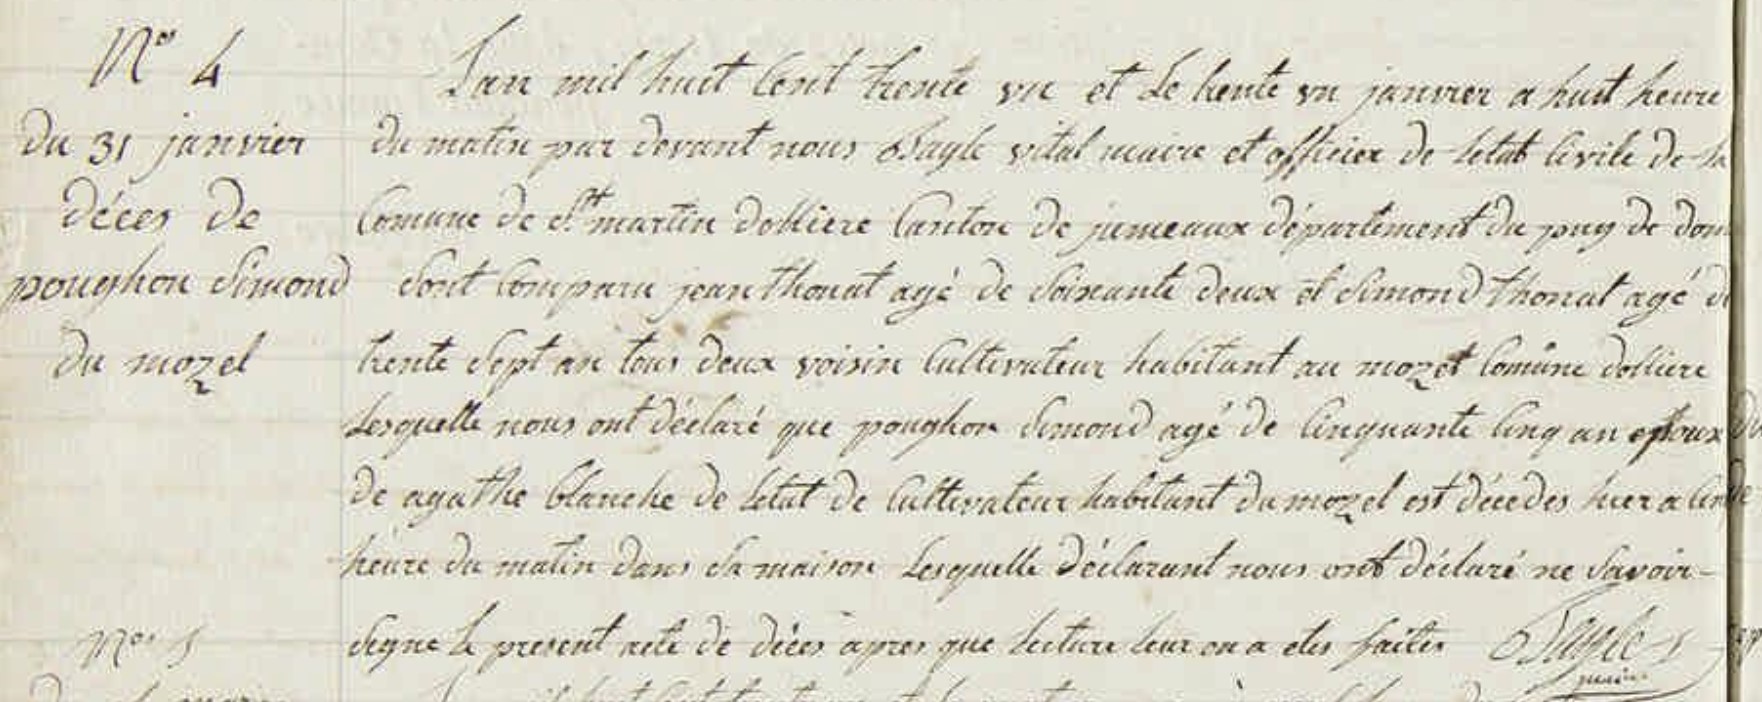 Nos 4
du 31 janvier
déces de
poughon Simond
du mozel
Lan mil huit Cent trente un et Le trente un janvier a huit heure
du matin par devant nous Bayle vital maire et officier de letat Civile de la
Comune de St martin dolliere Canton de jumeaux département du puy de dom
Sont Comparu jean thonat agé de Soixante deux et Simond thonat agé de
trente Sept an tous deux voisin Cultivateur habitant au mozel Comune dolliere
Lesquelle nous ont déclaré que poughon Simond agé de Cinquante Cinq an epoux
de agathe blanche de letat de Cultivateur habitant du mozel est décedes hier a
heure du matin dans Sa maison Lesquelle déclarant nous ont déclaré ne Savoir
Signe le present acte de déces apres que lecture leur on a etes faites Bayle
maire
Nos 5